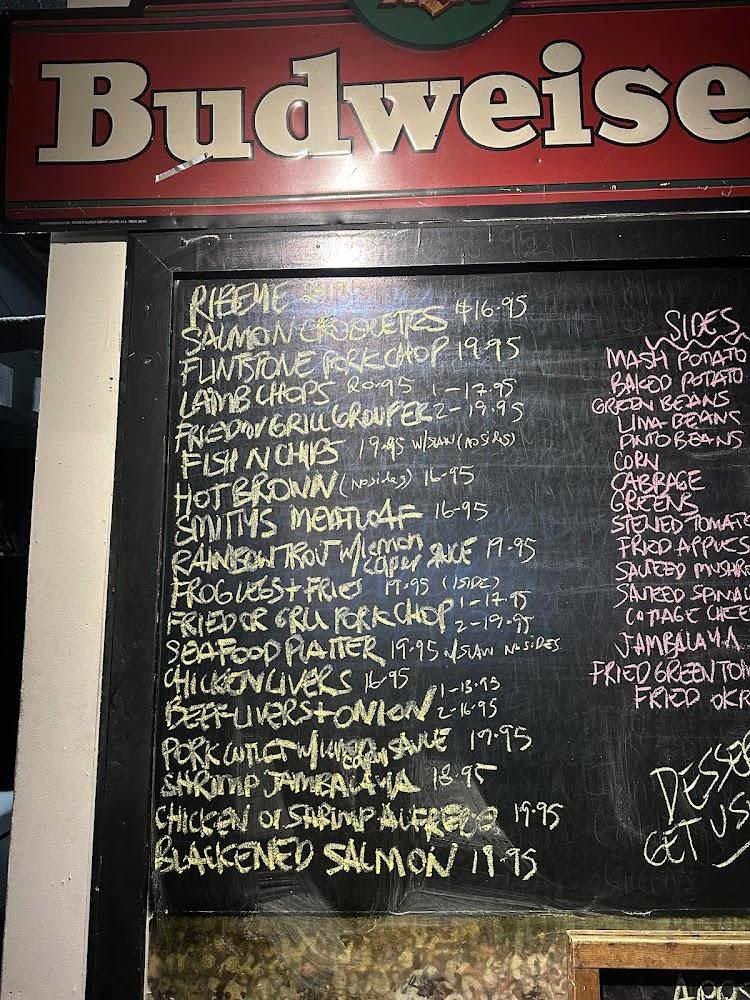 Budweise
RIBEYE
SALMON CROQUETTES $16.95
FLINTSTONE PORK CHOP 19.95
LAMB CHOPS 20.95
FRIED OR GRILL GROUPER 1-17.95 2-19.95
FISH N CHIPS 19.95 W/SLAW (NO SIDES)
HOT BROWN (NO SIDES) 16.95
SMITTYS MEATLOAF 16.95
RAINBOW TROUT W/LEMON CAPER SAUCE 19.95
FROG LEGS + FRIES 19.95 (1 SIDE)
FRIED OR GRLL PORK CHOP 1-17.95 2-19.95
SEAFOOD PLATTER 19.95 W/SLAW NO SIDES
CHICKEN LIVERS 16.95
BEEF LIVERS + ONION 1-13.95 2-16.95
PORK CUTLET W/LEMON CAPER SAUCE 17.95
SHRIMP JAMBALAYA 18.95
CHICKEN OR SHRIMP ALFREDO 19.95
BLACKENED SALMON 19.95
SIDES
MASH POTATO
BAKED POTATO
GREEN BEANS
LIMA BEANS
PINTO BEANS
CORN
CABBAGE
GREENS
STEWED TOMATO
FRIED APPLES
SAUTEED MUSHR
SAUTEED SPINAC
COTTAGE CHEE
JAMBALAYA
FRIED GREEN TOM
FRIED OKR
DESSE
GET US